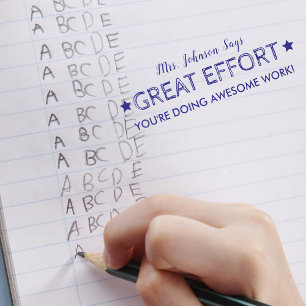 A B C D E
A B C D E
A B C D E
A B C D E
A B C D E
A B C D E
A B C D E
A B C D E
A B C D E
A B C D E
A B C D E
A
Mrs. Johnson Says
GREAT EFFORT
YOU'RE DOING AWESOME WORK!